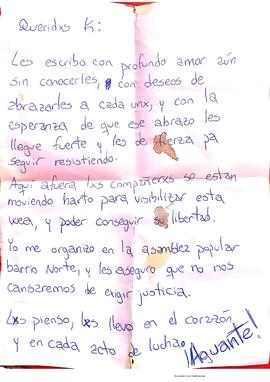 Queridxs K:
Les escribo con profundo amor aún
sin conocerles, con deseos de
abrazarles a cada unx, y con la
esperanza de que ese abrazo les
llegue fuerte y les de fuerza pa
seguir resistiendo.
Aquí afuera lxs compañerxs se están
moviendo harto para visibilizar esta
wea, y poder conseguir su libertad.
Yo me organizo en la asamblea popular
barrio Norte, y les aseguro que no nos
cansaremos de exigir justicia.
Lxs pienso, lxs llevo en el corazón
y en cada acto de lucha.
¡Aguante!